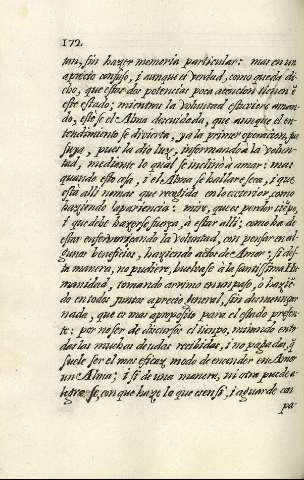 172
tan, sin hazer memoria particular: mas en un
aprecio confuso, i aunque es verdad, como queda di-
cho, que estas dos potencias poca atencion tienen ẽ
este estado; mientras la voluntad estuviere aman-
do, este se el Alma descuidada, que aunque el en-
tendimiento se divierta, ya la primer operacion, pa
suya, pues la dio luz, informando à la volun-
tud, mediante lo qual se inclinò à amar: mas
quando esto cesa, i el Alma se hallare seca, i que
està alli nomas que recogida en lo exterior, como
haziendo la apariencia: mire, que es perder tiẽpo,
i que debe hazerse fuerza, à estar alli; como ha de
estar enfervorizando la voluntad, con pensar en al-
gunos beneficios, haziendo actos de Amor; si des-
ta manera, no pudiere, buelvase à la santissima Hu
manidad, tomando arrimo en un paso, ò haziẽ-
do en todos juntos aprecio general, sin demenuga
nada, que es mas aproposito para el estado presen-
te: por no ser de discursos el tienpo, mirando sento
das las muchas deudas recibidas, i no pagadas, q̃
suele ser el mas eficaz modo de encender en Amor
un Alma; i si de una manera, ni otra puede a-
se, conque haze lo que es en si, i aguarde con
pa